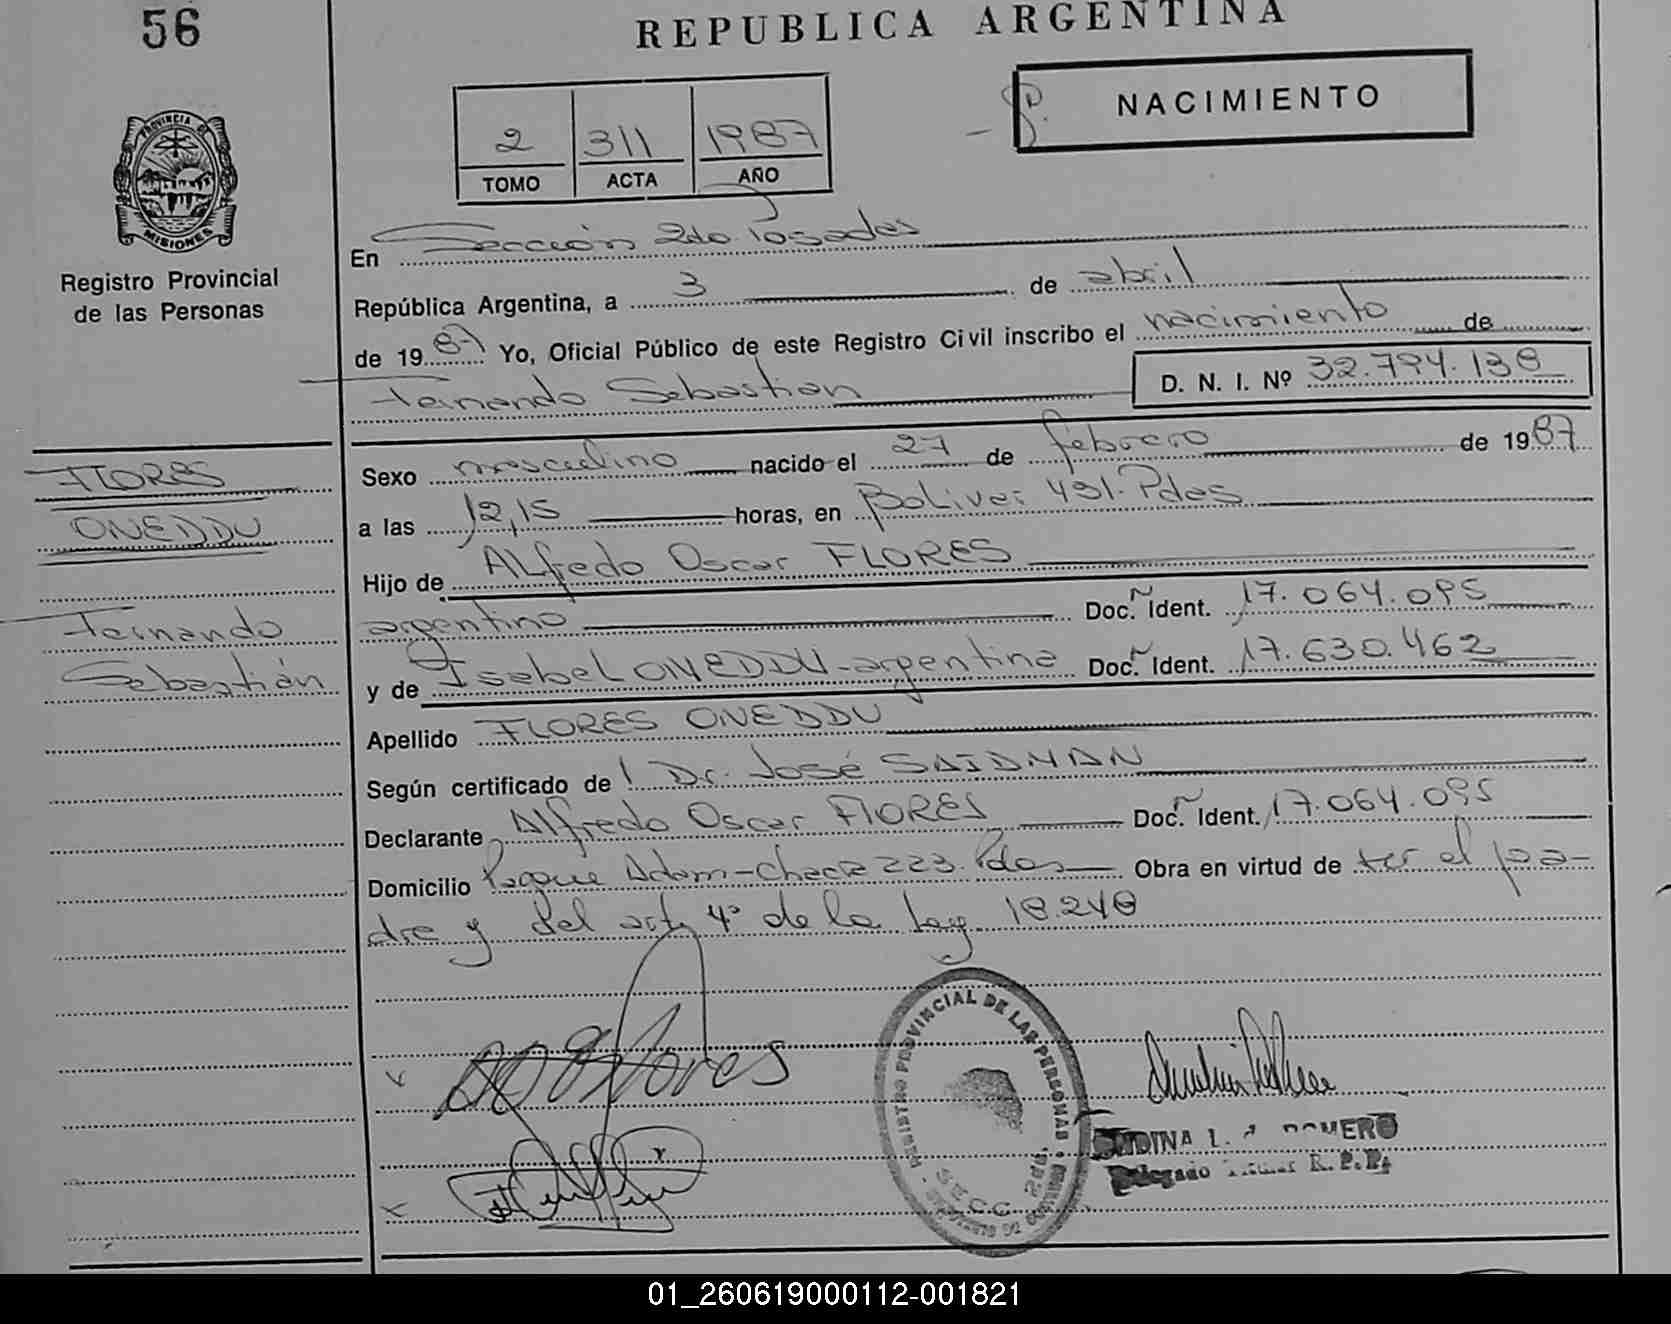 56
REPUBLICA ARGENTINA
2 311 1987
TOMO ACTA AÑO
NACIMIENTO
PROVINCIA DE
MISIONES
Registro Provincial
de las Personas
En Sección 2do. Posadas
República Argentina, a 3 de abril
de 1987 Yo, Oficial Público de este Registro Civil inscribo el nacimiento de
Fernando Sebastian D. N. I. Nº 32.794.138
FLORES
ONEDDU
Fernando
Sebastián
Sexo masculino nacido el 27 de febrero de 1987
a las 12,15 horas, en Bolivar 491. Pdas
Hijo de Alfredo Oscar FLORES
argentino Doc. Ident. 17.064.095
y de Isabel ONEDDU - argentina Doc. Ident. 17.630.462
Apellido FLORES ONEDDU
Según certificado de l Dr. José SAIDMAN
Declarante Alfredo Oscar FLORES Doc. Ident. 17.064.095
Domicilio Adam-Chacra 223. Pdas Obra en virtud de ser el pa-
dre y del art. 4º de la Ley 18.248
Flores
REGISTRO PROVINCIAL DE LAS PERSONAS
SECC. 2da.
ROMERO
Delegado Titular R. P. P.
01_260619000112-001821